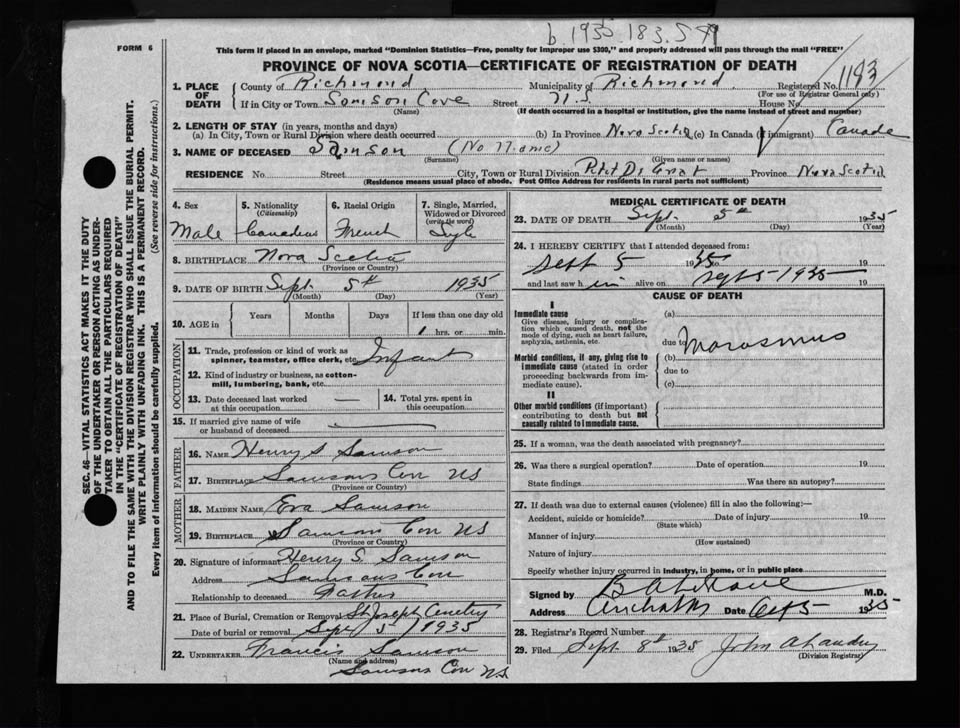 b. 1935 183.5
FORM 6
This form if placed in an envelope, marked "Dominion Statistics—Free, penalty for improper use $300," and properly addressed will pass through the mail "FREE"
PROVINCE OF NOVA SCOTIA—CERTIFICATE OF REGISTRATION OF DEATH
1193
1. PLACE OF DEATH
County of Richmond Municipality of Richmond Registered No.
(For use of Registrar General only)
If in City or Town Samson Cove Street N.S. House No.
(Name) (If death occurred in a hospital or institution, give the name instead of street and number)
2. LENGTH OF STAY (in years, months and days)
(a) In City, Town or Rural Division where death occurred (b) In Province Nova Scotia (c) In Canada (if immigrant) Canada
3. NAME OF DECEASED Samson (No Name)
(Surname) (Given name or names)
RESIDENCE No. Street City, Town or Rural Division Petit De Grat Province Nova Scotia
(Residence means usual place of abode. Post Office Address for residents in rural parts not sufficient)
4. Sex 5. Nationality (Citizenship) 6. Racial Origin 7. Single, Married, Widowed or Divorced (write the word)
Male Canadian French Single
8. BIRTHPLACE Nova Scotia
(Province or Country)
9. DATE OF BIRTH Sept 5th 1935
(Month) (Day) (Year)
10. AGE in Years Months Days If less than one day old
1 hrs. or min.
OCCUPATION
11. Trade, profession or kind of work as spinner, teamster, office clerk, etc. Infant
12. Kind of industry or business, as cotton-mill, lumbering, bank, etc.
13. Date deceased last worked at this occupation —
14. Total yrs. spent in this occupation
15. If married give name of wife or husband of deceased
FATHER
16. NAME Henry S Samson
17. BIRTHPLACE Samsons Cove NS
(Province or Country)
MOTHER
18. MAIDEN NAME Eva Samson
19. BIRTHPLACE Samsons Cove NS
(Province or Country)
20. Signature of informant Henry S. Samson
Address Samsons Cove
Relationship to deceased Father
21. Place of Burial, Cremation or Removal St Joseph Cemetery
Date of burial or removal Sept 5 / 1935
22. UNDERTAKER Francis Samson
(Name and address)
Samsons Cove NS
MEDICAL CERTIFICATE OF DEATH
23. DATE OF DEATH Sept. 5th 1935
(Month) (Day) (Year)
24. I HEREBY CERTIFY that I attended deceased from:
Sept 5 1935 to Sept 5 1935 19
and last saw him alive on 19
CAUSE OF DEATH
I
Immediate cause
Give disease, injury or complication which caused death, not the mode of dying, such as heart failure, asphyxia, asthenia, etc.
(a)
due to Marasmus
Morbid conditions, if any, giving rise to immediate cause (stated in order proceeding backwards from immediate cause).
(b)
due to
(c)
II
Other morbid conditions (if important) contributing to death but not causally related to immediate cause.
25. If a woman, was the death associated with pregnancy?
26. Was there a surgical operation? Date of operation 19
State findings Was there an autopsy?
27. If death was due to external causes (violence) fill in also the following:—
Accident, suicide or homicide? Date of injury 19
(State which)
Manner of injury
(How sustained)
Nature of injury
Specify whether injury occurred in industry, in home, or in public place
Signed by M.D.
Address Arichat NS Date 5 1935
28. Registrar's Record Number
29. Filed Sept. 8th 1935 John A Landry
(Division Registrar)
SEC. 46—VITAL STATISTICS ACT MAKES IT THE DUTY
OF THE UNDERTAKER OR PERSON ACTING AS UNDERTAKER TO OBTAIN ALL THE PARTICULARS REQUIRED
IN THE "CERTIFICATE OF REGISTRATION OF DEATH"
AND TO FILE THE SAME WITH THE DIVISION REGISTRAR WHO SHALL ISSUE THE BURIAL PERMIT.
WRITE PLAINLY WITH UNFADING INK. THIS IS A PERMANENT RECORD.
Every item of information should be carefully supplied. (See reverse side for instructions.)